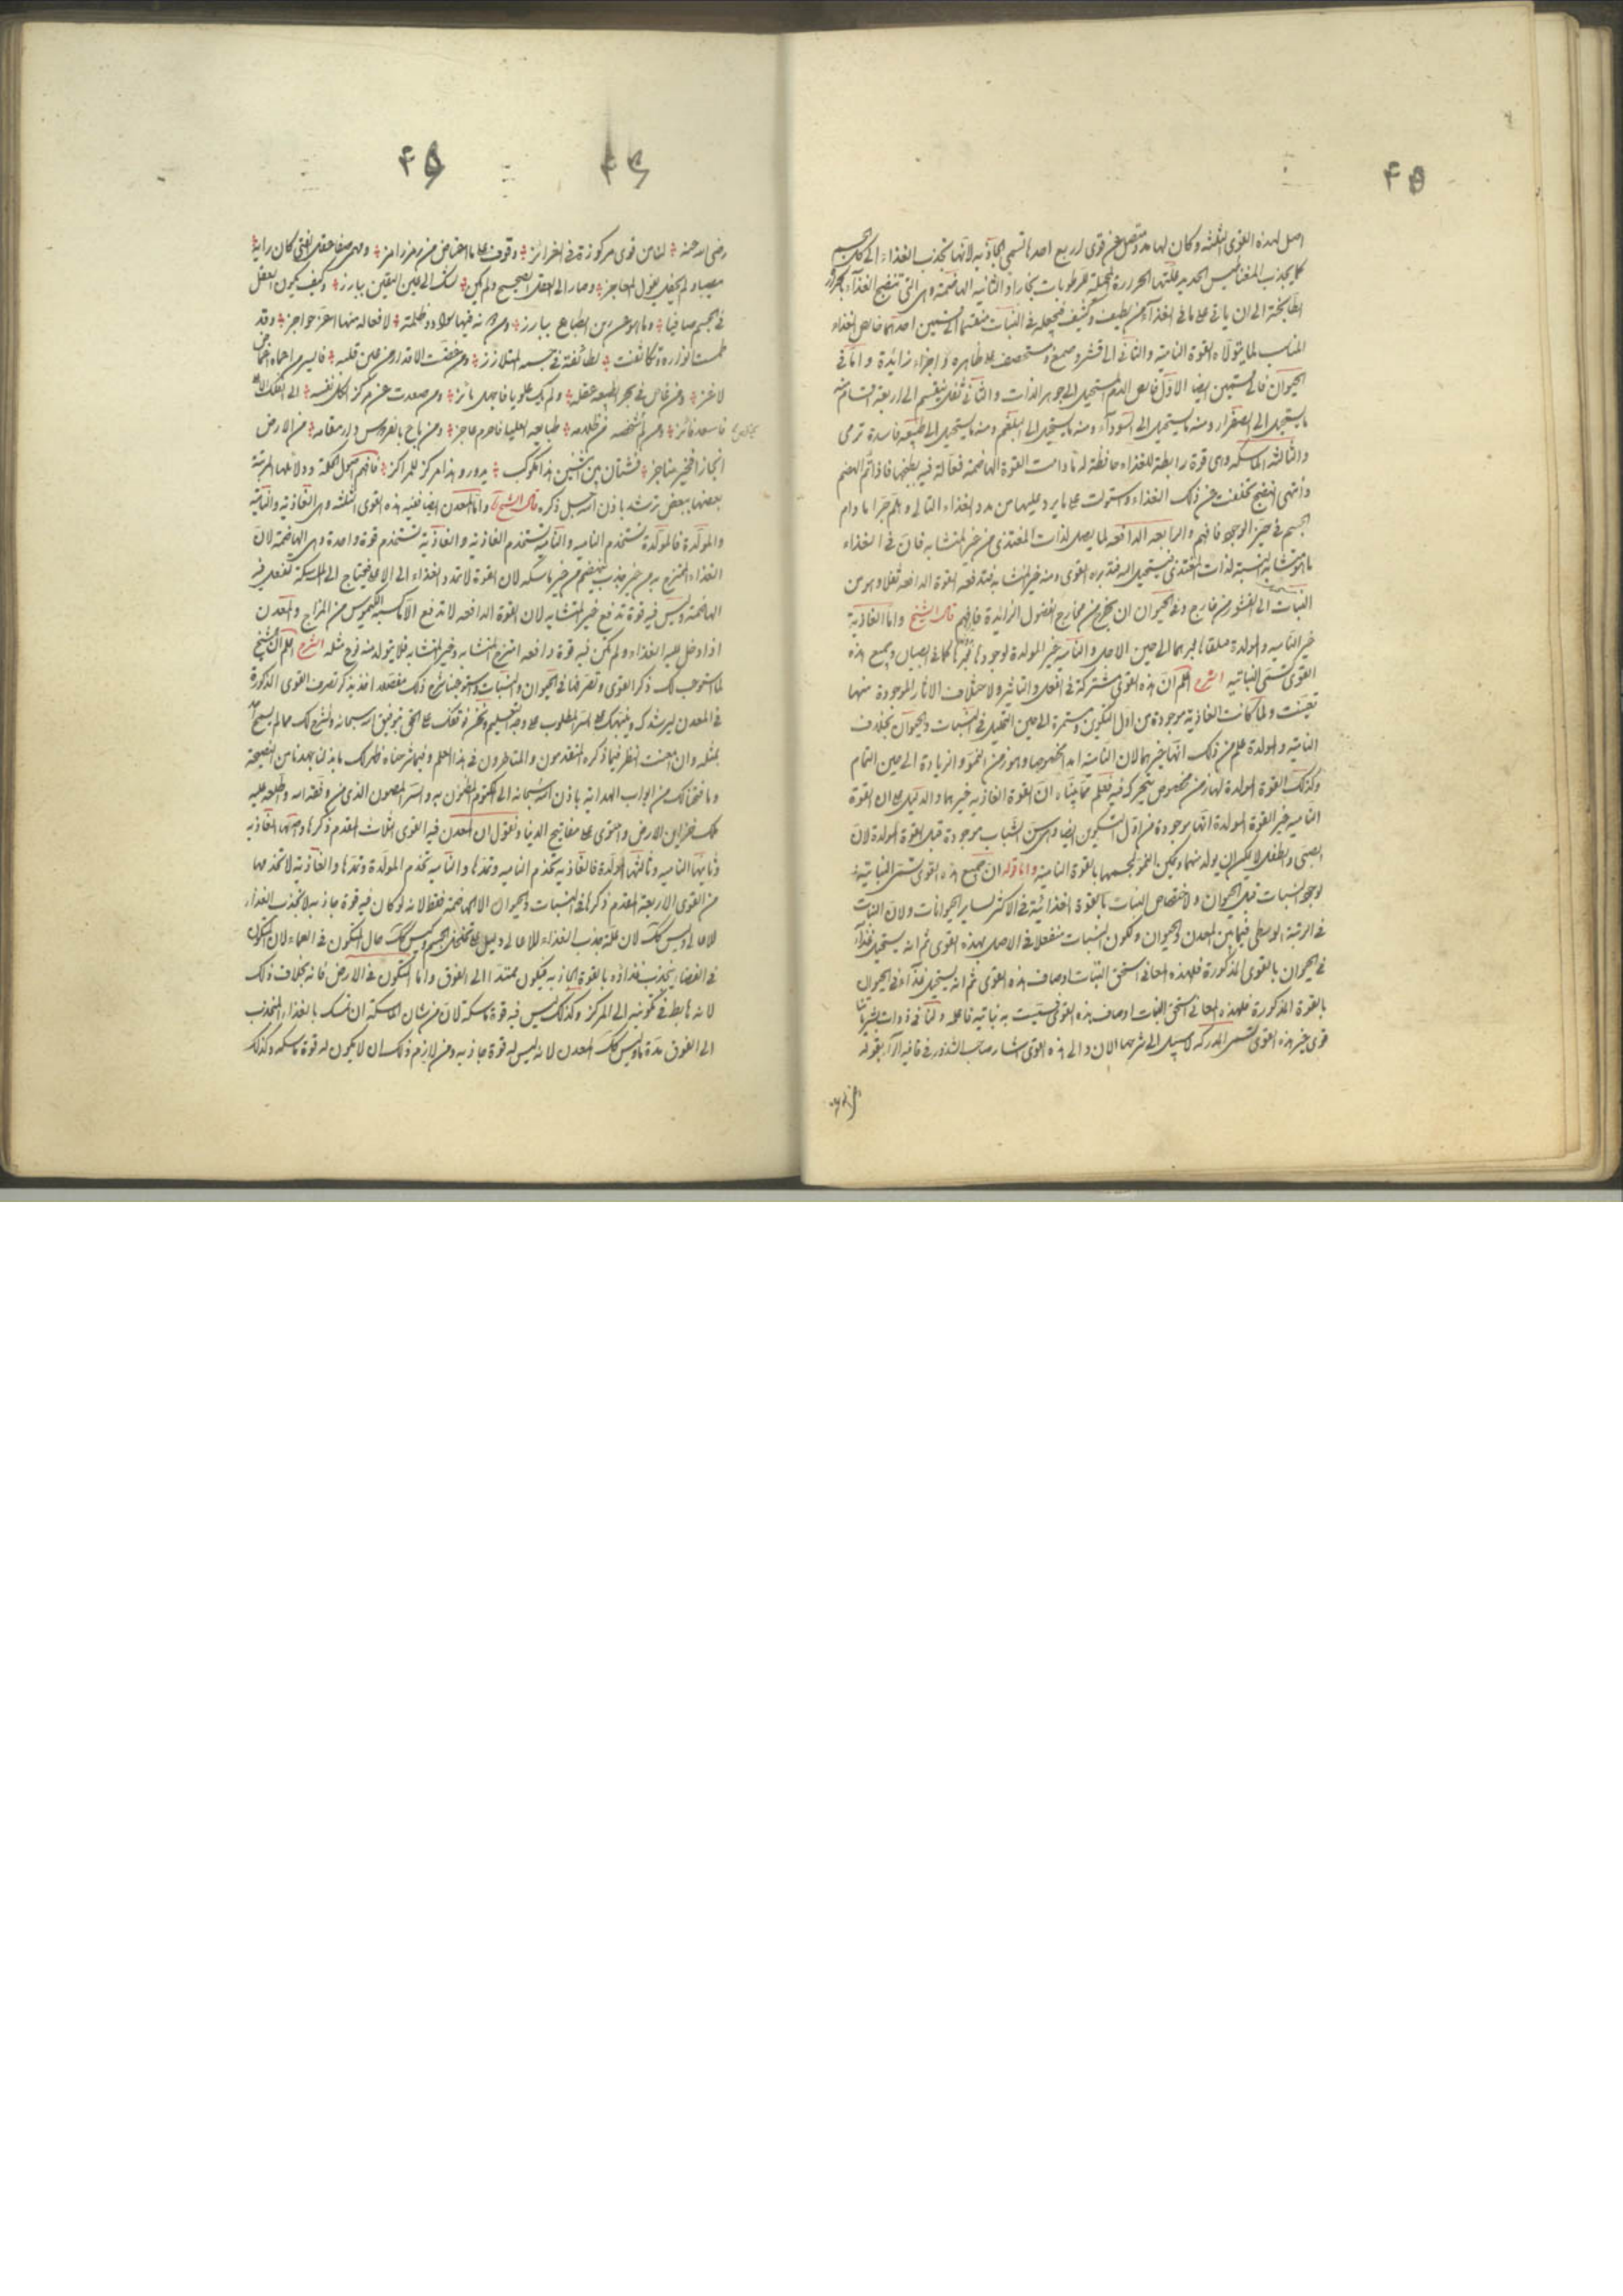 ۴۵
اصل لهذه القوى الثلثة وكان لها مدد متصل عن قوى اربع احدها تسمى الجاذبة لانها تجذب الغذاء الى كل الجسم
كما يجذب المغناطيس الحديد علتها الحرارة المحيلة للرطوبات بخارا والثانية الهاضمة وهى التى تنضج الغذاء بالحرارة
الطابخة الى ان ياتى على ما فى الغذاء من لطيف وكثيف فيجعله فى النبات منقسما الى قسمين احدهما خالص الغذاء
المناسب لما يتولاه القوة النامية والثانى الى قشر وصمغ مستحصف على ظاهره واجزاء زائدة واما فى
الحيوان فالى قسمين ايضا الاول خالص الدم المستحيل الى جوهر الذات والثانى ثفل ينقسم الى اربعة اقسام منه
ما يستحيل الى الصفراء ومنه ما يستحيل الى السوداء ومنه ما يستحيل الى البلغم ومنه ما يستحيل الى طبيعة فاسدة ترمى
والثالثة الماسكة وهى قوة رابطة للغذاء حافظة له ما دامت القوة الهاضمة فعالة فيه بطبخها فاذا تم الهضم
وانتهى النضج تخلفت عن ذلك الغذاء واستولت على ما يرد عليها من مدد الغذاء التالى وهلم جرا ما دام
الجسم فى حيز الوجود فافهم والرابعة الدافعة لما يصل لذات المغتذى من غير المتشابه فان فى الغذاء
ما هو متشابه بالنسبة لذات المغتذى فيستحيل اليه فتدبره القوى ومنه غير المتشابه فتدفعه القوة الدافعة ثفلا وهو من
النبات الى القشور من خارج وفى الحيوان ان يخرج من مخارج الفضول الزائدة فافهم قال الشيخ واما الغاذية
غير النامية والمولدة مطلقا لخبرهما الى حين الاصل والنامية غير المولدة لوجودها فيما كما فى الصبيان وجميع هذه
القوى تسمى النباتية الشرح اعلم ان هذه القوى مشتركة فى الفعل والتاثير ولاختلاف الاثار الموجودة منها
تعينت ولما كانت الغاذية موجودة من اول التكوين ومستمرة الى حين التحليل فى النبات والحيوان بخلاف
النامية والمولدة علم من ذلك انها غيرهما لان النامية امدا مخصوصا وهو زمن النمو والزيادة الى حين التمام
وكذلك القوة المولدة لها زمن مخصوص تتحرك فيه فعلم مما بيناه ان القوة الغاذية غيرهما والدليل على ان القوة
النامية غير القوة المولدة انها موجودة من اول التكوين ايضا والى سن الشباب موجودة قبل القوة المولدة لان
الصبى والطفل لا يمكن ان يولد منهما ويمكن النمو لجسمهما بالقوة النامية واما قوله ان جميع هذه القوى تسمى النباتية
لوجود النبات قبل الحيوان ولاختصاص النبات بالقوة الغذائية فى الاكثر لساير الحيوانات ولان النبات
فى الرتبة الوسطى فيما بين المعدن والحيوان ولكون النبات منفعلا فى الاصل بهذه القوى ثم انه يستحيل غذاء
فى الحيوان بالقوى المذكورة فلهذه المعانى استحق النبات اوصاف هذه القوى ثم انه يستحيل غذاء فى الحيوان
بالقوة المذكورة فلهذه المعانى استحق النبات اوصاف هذه القوى فسميت به نباتية فاعله ولنا فى ذوات بشريتنا
قوى غير هذه القوى تسمى المدركة لا سبيل الى شرحها الان والى هذه القوى اشار صاحب الشذور فى قافية الزاء بقوله
۴۶
۴۵
رضى الله عنه لنا من قوى مركوزة فى الغرائز وقوف على ما اعتاض من رمز رامز ومن صفا عقل الفتى كان رايه
مصيبا ولم يحفل بقول المعاجز وصار الى العقل الصحيح ولم يكن لشك الى عين اليقين ببارز وكيف يكون العقل
فى الجسم صافيا وما هو عن رين الطباع ببارز ومن انه فيها سواد وظلمة لافعاله منها اعز حواجز وقد
طمست انواره وتكاثفت لطائفه فى جسمه المتلازز ومن خفضت الاقدار من عين قلبه فاليس من اعماه
لاغز ومن غاص فى بحر الطبيعة عقله ولم يك علويا فاجهل مائز ومن صعدت عن مركز الكل نفسه الى الفلك الاعلى
فاسعد فائز ومن لم تخلصه من ظلمه طبايعه العليا فاحرم عاجز ومن باع بالفردوس دار مقامه من الارض
انجازا فخير مناجز فشتان بين اثنين هذا لكوكب يدور وهذا مركز للمراكز فافهم اصل الحكمة ودلائلها المرتبة
بعضها ببعض ترشد باذن الله جل ذكره قال الشيخ واما المعدن ايضا ففيه هذه القوى الثلثة وهى الغاذية والنامية
والمولدة فالمولدة تستخدم النامية والنامية تستخدم الغاذية والغاذية تستخدم قوة واحدة وهى الهاضمة لان
الغذاء الممتزج به من غير جذب فيهضم من غير ماسكة لان القوة لا تمدد الغذاء الى الاعلى فيحتاج الى الماسكة لتفعل فيه
الهاضمة وليس فيه قوة تدفع غير المتشابه لان القوة الدافعة لا تدفع الا ما كسبه الكيموس من المزاج والمعدن
اذا دخل عليه الغذاء ولم تكن فيه قوة دافعة امتزج المتشابه وغير المتشابه فلا يتولد منه نوع مثله الشرح اعلم ان الشيخ
لما استوعب لك ذكر القوى وتصرفها فى الحيوان والنبات واستوجبنا شرح ذلك مفصلا اخذ يذكر تصرف القوى المذكورة
فى المعدن ليرشدك وينبهك على السر المطلوب على وجه التعليم ونحن نوقفك على الحق بتوفيق الله سبحانه ونشرح لك ما لم يسمح احد
بمثله وان امعنت النظر فيما ذكره المتقدمون والمتاخرون فى هذا العلم وفيما شرحناه ظهر لك ما بذلنا بجهدنا من النصيحة
وما فتحنا لك من ابواب الهداية باذن الله سبحانه الى المكتوم المظنون به والسر المصون الذى من وفقه الله واطلعه عليه
ملك خزاين الارض واحتوى على مفاتيح الدنيا ونقول ان المعدن فيه القوى الثلاث المقدم ذكرها واحدتها الغاذية
وثانيها النامية وثالثها المولدة فالغاذية تخدم النامية وتمدها والنامية تخدم المولدة وتمدها والغاذية لا تخدمها
من القوى الاربعة المقدم ذكرها فى النبات والحيوان الا الهاضمة فقط لانه لو كان فيه قوة جاذبة لانجذب الغذاء
للاعالى وليس كذلك لان علة جذب الغذاء للاعالى دليل على تخلخل الجسم وليس كذلك حال المتكون فى العماء لان المتكون
فى الفضاء ينجذب غذاؤه بالقوة الجاذبة فيكون ممتدا الى الفوق واما المتكون فى الارض فانه بخلاف ذلك
لانه هابط فى تكوينه الى المركز وكذلك ليس فيه قوة ماسكة لان من شان الماسكة ان تمسك بالغذاء المنجذب
الى الفوق مدة ما وليس كذلك المعدن لانه ليس له قوة جاذبة ومن لازم ذلك ان لا يكون له قوة ماسكة وكذلك